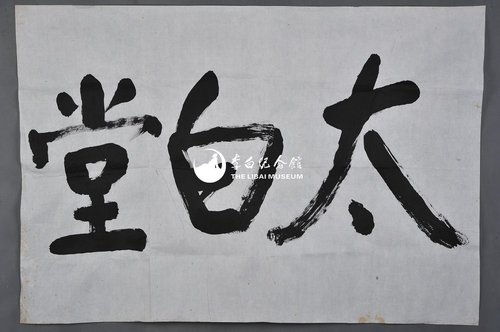 太白堂
李白纪念館
THE LIBAI MUSEUM